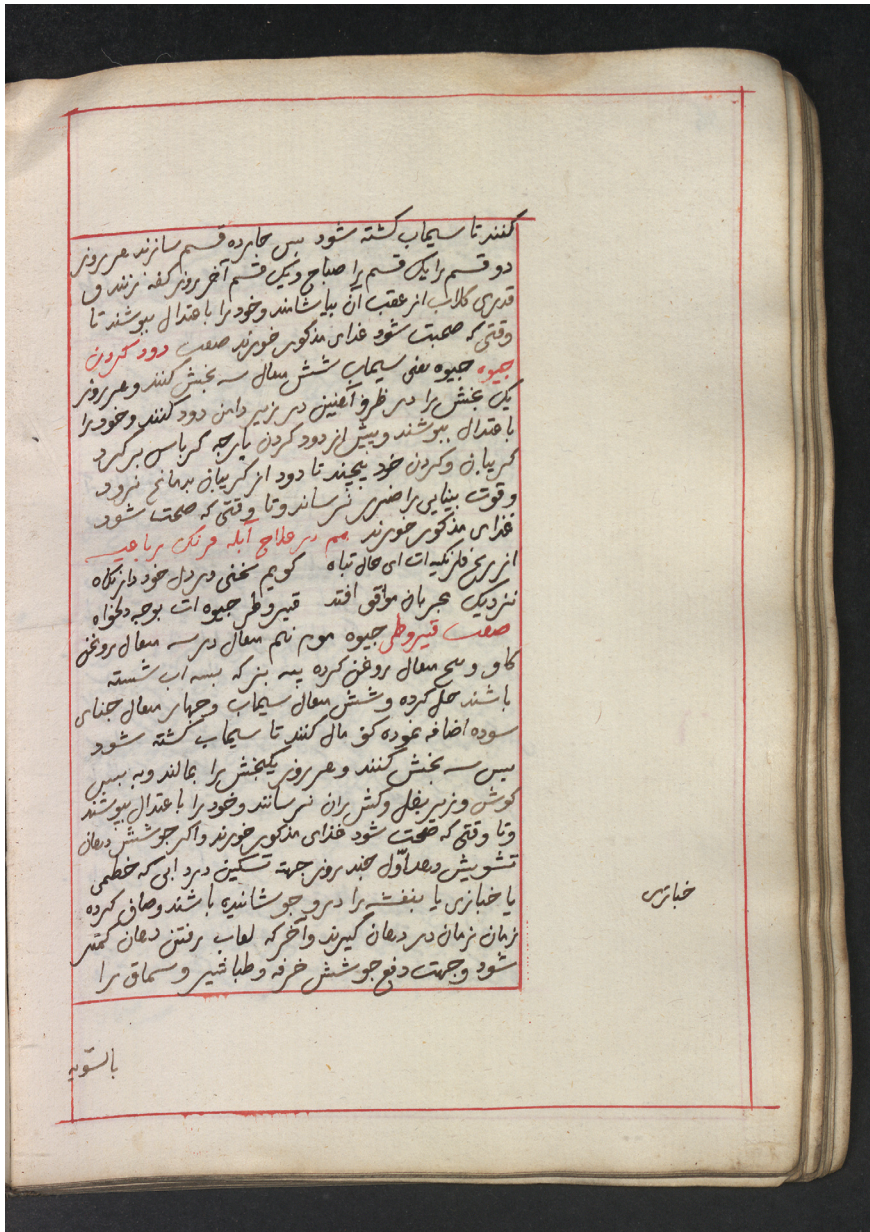 کنند تا سیماب کشته شود پس چهارده قسم سازند هر روز
دو قسم را یک قسم را صباح و یک قسم آخر روز کفه زنند و
قدری گلاب از عقب آن بیاشامند و خود را باعتدال بپوشند تا
وقتی که صحت شود غذای مذکور خورند صفت دود کردن
جیوه جیوه یعنی سیماب شش مثقال سه بخش کنند و هر روز
یک بخش را در ظرف آهنین در زیر دامن دود کنند و خود را
باعتدال بپوشند و پیش از دود کردن پارچه کرباس بر گرد
گریبان و گردن خود پیچند تا دود از گریبان بدماغ نرود
و قوت بینایی را ضرری نرساند و تا وقتی که صحت شود
غذای مذکور خورند در علاج آبله فرنگ رباعیه
از رنج فلزنکیه ات ای حال تباه گویم سخنی در دل خود دار نگاه
نزدیک مجربان موافق افتد قیروطی جیوه ات بوجه دلخواه
صفت قیروطی جیوه موم نیم مثقال در سه مثقال روغن
گاو و پنج مثقال روغن کرده پیه بز که بسه آب شسته
باشند حل کرده و شش مثقال سیماب و چهار مثقال حنای
سوده اضافه نموده کف مال کنند تا سیماب کشته شود
پس سه بخش کنند و هر روز یکبخش را بمالند و به پس
گوش و زیر بغل و کش ران نرسانند و خود را باعتدال بپوشند
و تا وقتی که صحت شود غذای مذکور خورند و اگر جوشش دهان
تشویش دهد اوّل چند روز جهت تسکین درد آبی که خطمی
یا خبازی یا بنفشه را درو جوشانیده باشند و صاف کرده
زمان زمان در دهان گیرند و آخر که لعاب رفتن دهان کمتر
شود و جهت دفع جوشش خرفه و طباشیر و سماق را
خبازی
بالسّویه